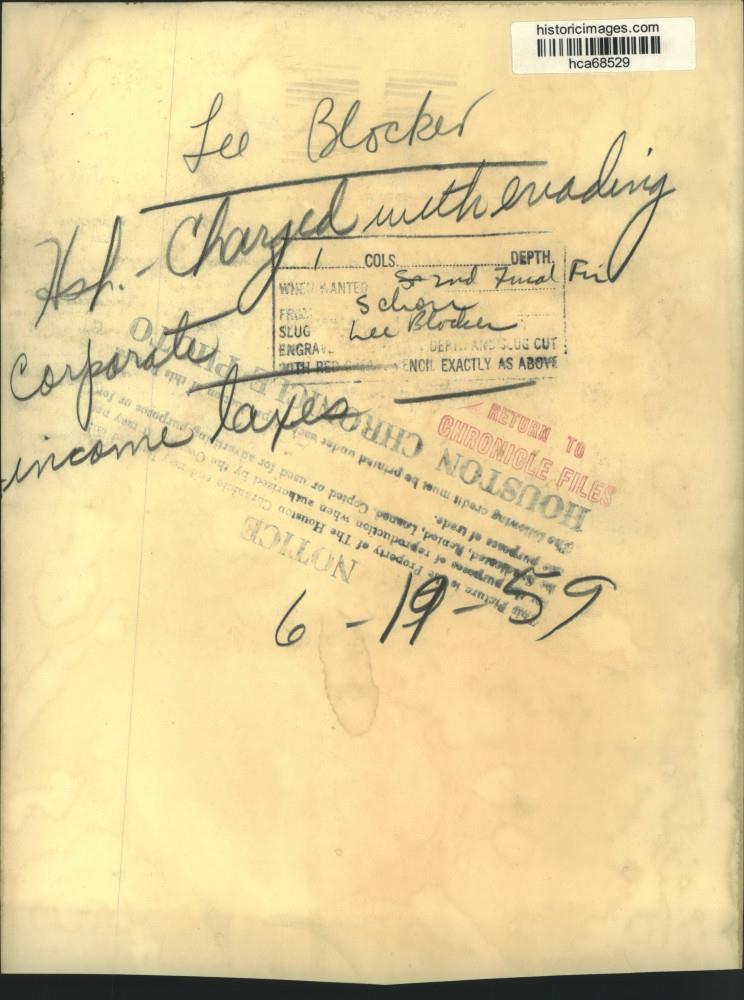 historicimages.com
hca68529
Lee Blocker
Charged with evading
corporate
income taxes
1 COLS. DEPTH
WHEN WANTED Final
FROM
SLUG Lee Blocker
ENGRAV. DEPTH AND SLUG CUT
WITH RED PENCIL EXACTLY AS ABOVE
RETURN TO
CHRONICLE FILES
NOTICE
This Picture is the Property of The Houston Chronicle
purposes of reproduction when authorized by the
Rented, Loaned, Copied or used for advertising purposes or for
purposes of trade.
The following credit must be printed under each
HOUSTON CHRONICLE PHOTO
6-19-59